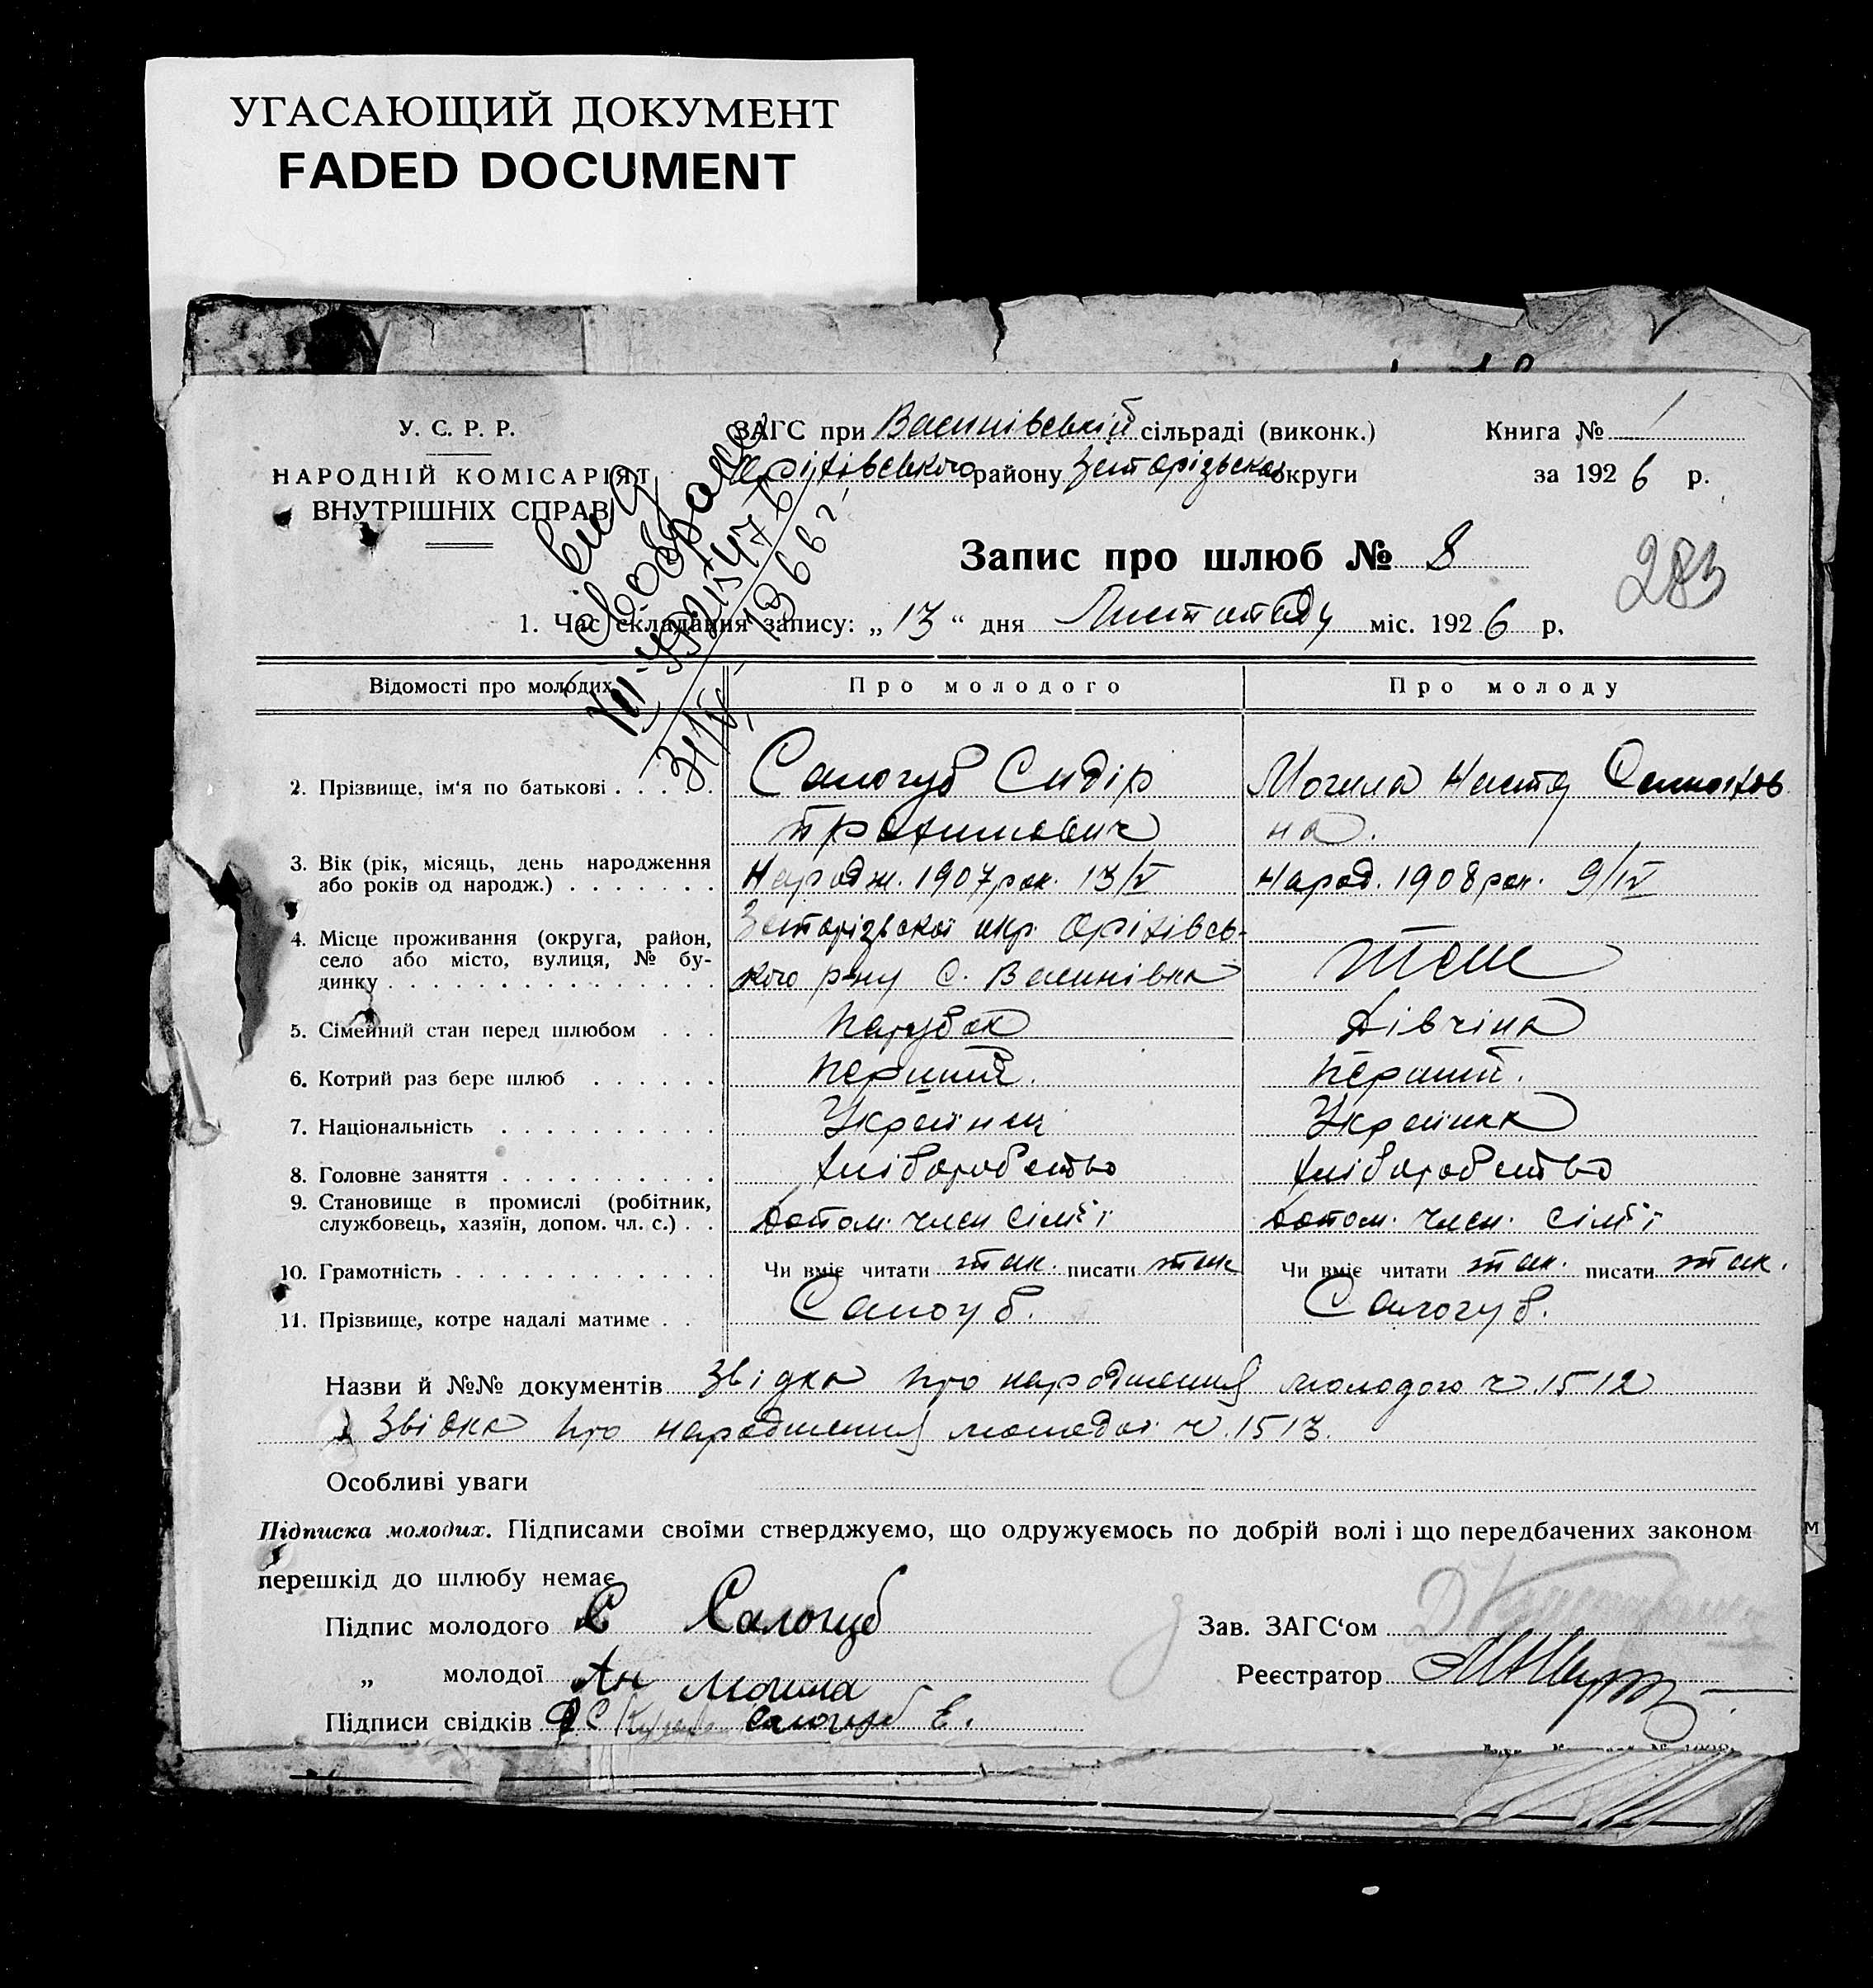 УГАСАЮЩИЙ ДОКУМЕНТ
FADED DOCUMENT
У. С. Р. Р.
НАРОДНІЙ КОМІСАРІЯТ
ВНУТРІШНІХ СПРАВ
ЗАГС при Васинівській сільраді (виконк.)
Оріхівського району Запорізької округи
Книга № 1
за 1926 р.
Запис про шлюб № 8
283
1. Час складання запису: „ 13 “ дня Листопаду міс. 1926 р.
Відомості про молодих
Про молодого
Про молоду
2. Прізвище, ім'я по батькові . . . . .
Салогуб Сидір
Трохимович
Могила Настя
на.
3. Вік (рік, місяць, день народження
або років од народж.) . . . . . . .
Народж. 1907 рок. 13/V
Народ. 1908 рок. 9/IV
4. Місце проживання (округа, район,
село або місто, вулиця, № бу-
динку . . . . . . . . . . . . . . .
Запорізької окр. Оріхівсь-
кого р-ну С. Васинівка
Теж
5. Сімейний стан перед шлюбом . . .
Парубок
Дівчина
6. Котрий раз бере шлюб . . . . . .
Перший.
Перший.
7. Національність . . . . . . . . . .
Українец
Українка
8. Головне заняття . . . . . . . . . .
Хліборобство
Хліборобство
9. Становище в промислі (робітник,
службовець, хазяїн, допом. чл. с.) . .
Допом. член сім'ї
Допом. член. сім'ї
10. Грамотність . . . . . . . . . . . .
Чи вміє читати так. писати так
Чи вміє читати так. писати так.
11. Прізвище, котре надалі матиме . . .
Салогуб.
Салогуб.
Назви й №№ документів Звідка про народження молодого ч. 1512
Звідка про народження молодої ч. 1513.
Особливі уваги
Підписка молодих. Підписами своїми стверджуємо, що одружуємось по добрій волі і що передбачених законом
перешкід до шлюбу немає
Підпис молодого С Салогуб
Зав. ЗАГС‘ом
„ молодої Ан Могила
Реєстратор
Підписи свідків Салогуб Е.